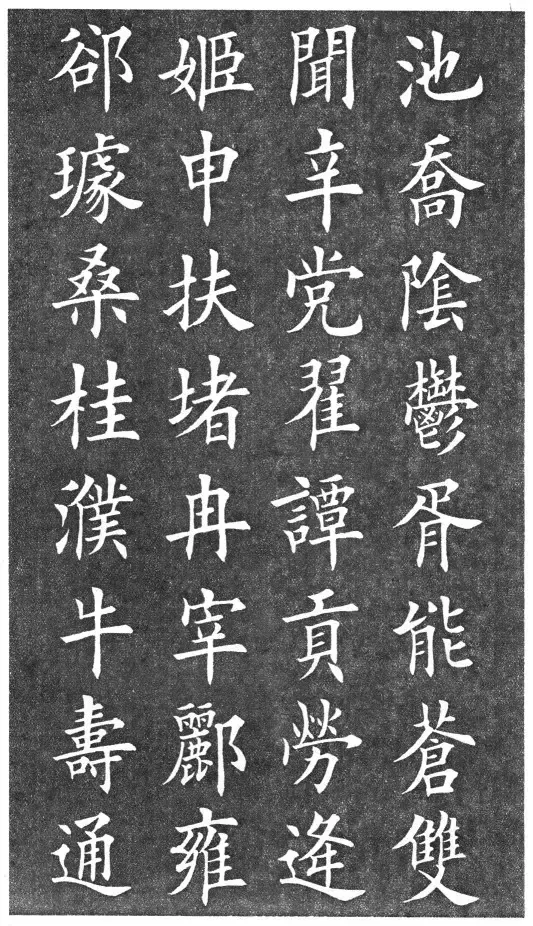 池喬陰鬱胥能蒼雙
聞辛党翟譚貢勞逄
姬申扶堵冉宰酈雍
郤璩桑桂濮牛壽通